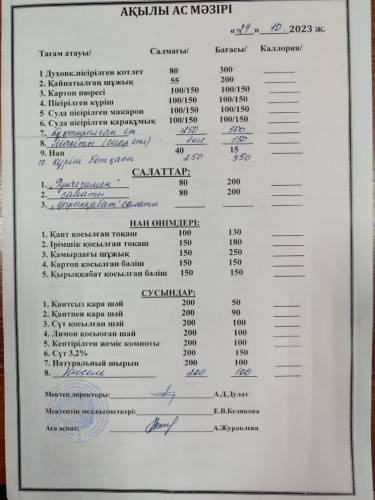 АҚЫЛЫ АС МӘЗІРІ
«24» 10. 2023 ж.
Тағам атауы/ Салмағы/ Бағасы/ Каллория/
1 Духовк.пісірілген котлет 80 300
2. Қайнатылған шұжық 55 200
3. Картоп пюресі 100/150 100/150
4. Пісірілген күріш 100/150 100/150
5 Суда пісірілген макарон 100/150 100/150
6. Суда пісірілген қарақұмық 100/150 100/150
7. Бұқтырылған ет 250 500
8. Манты (сиыр еті) 1шт 150
9. Нан 40 15
10. Күріш ботқасы 250 350
САЛАТТАР:
1. 80 200
2. салаты 80 200
3. салаты
НАН ӨНІМДЕРІ:
1. Қант қосылған тоқаш 100 130
2. Ірімшік қосылған тоқаш 150 180
3. Қамырдағы шұжық 150 250
4. Картоп қосылған бәліш 150 150
5. Қырыққабат қосылған бәліш 150 150
СУСЫНДАР:
1. Қантсыз қара шай 200 50
2. Қантпен қара шай 200 90
3. Сүт қосылған шай 200 100
4. Лимон қосылған шай 200 100
5. Кептірілген жеміс компоты 200 100
6. Сүт 3,2% 200 150
7. Натуральный шырын 200 100
8. Кисель 200 100
Мектеп директоры: А.Д.Дулат
Мектептің мед.қызметкері: Е.В.Белякова
Аға аспаз: А.Журавлева